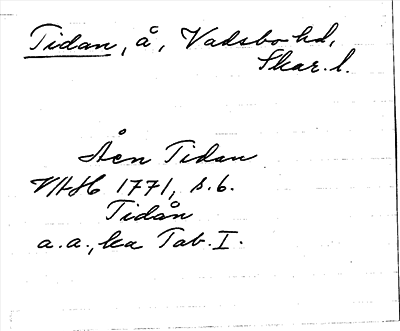 Tidan, å, Vadsbo hd,
Skar. l.
Åen Tidan
VAH 1771, s. 6.
Tidån
a. a., ka Tab. I.